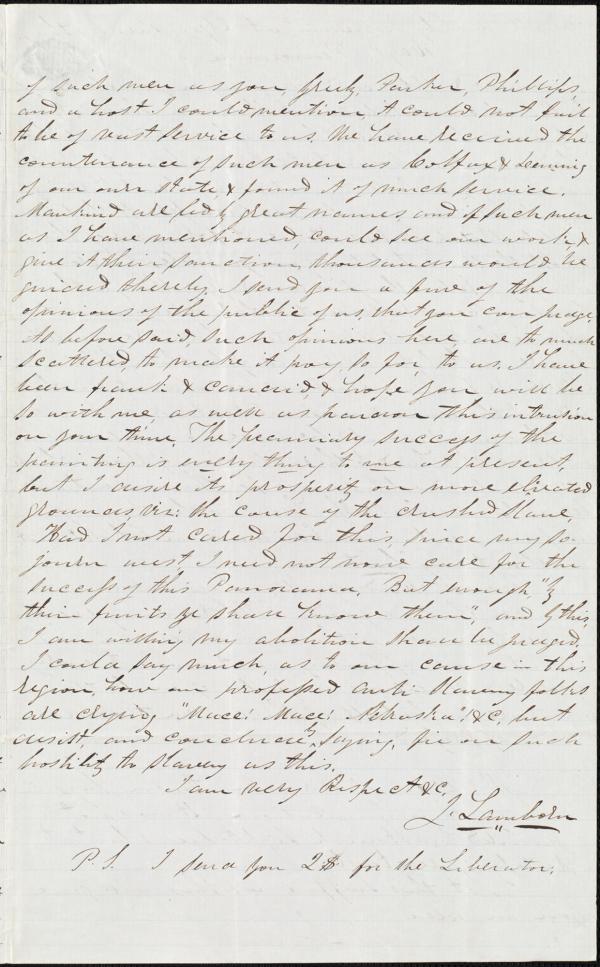 of such men as you Greely, Parker, Phillips,
and a host I could mention, it could not fail
to be of vast service to us. We have received the
countenance of such men as Colfax &
of our own state, & found it of much service.
Mankind are led by great names and if such men
as I have mentioned, could see our work, &
give it their sanction, thousands would be
guided thereby. I send you a few of the
opinions of the public of us, that you can judge.
As before said, such opinions here, are to much
scattered, to make it pay, so far, to us. I have
been frank & candid, & hope you will be
so with me, as well as pardon this intrusion
on your time. The pecuniary success of the
painting is every thing to me at present,
but I desire its prosperity on more elevated
grounds, viz: the cause of the crushed Slave.
Had I not cared for this, since my so-
journ west, I need not now care for the
success of this Panorama. But enough, "by
their fruits ye shall know them", and by this,
I am willing my abolition shall be judged,
I could say much, as to our cause in this
region, how our professed Anti-Slavery folks
are crying "Mace! Mace! Nebraska"! &c, but
desist, and conclude by saying, fie on such
hostility to Slavery as this.
I am very Respect &c.
L. Lamborn
P.S. I send you 2$ for the Liberator.